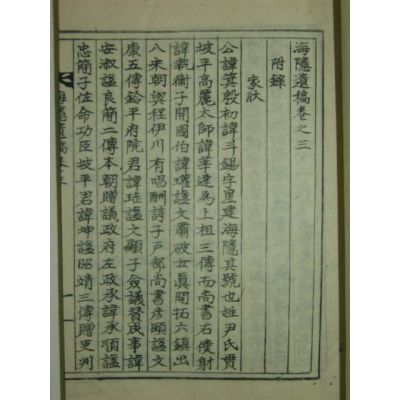 海隱遺稿卷之三
附錄
家狀
公諱箕殷初諱斗錫字星建海隱其號也姓尹氏貫
坡平高麗太師諱莘達爲上祖三傳而尙書右僕射
諱執衡子開國伯諱瓘諡文肅破女眞開拓六鎭出
八宋朝與程伊川有唱酬詩子戶部尙書彦頤諡文
康五傳鈴平府院君諱珤諡文顯子僉議贊成事諱
安淑諡良簡二傳本朝贈議政府左政承諱承順諡
忠簡子佐命功臣坡平君諱坤諡昭靖三傳贈吏判
海隱遺稿卷三
一